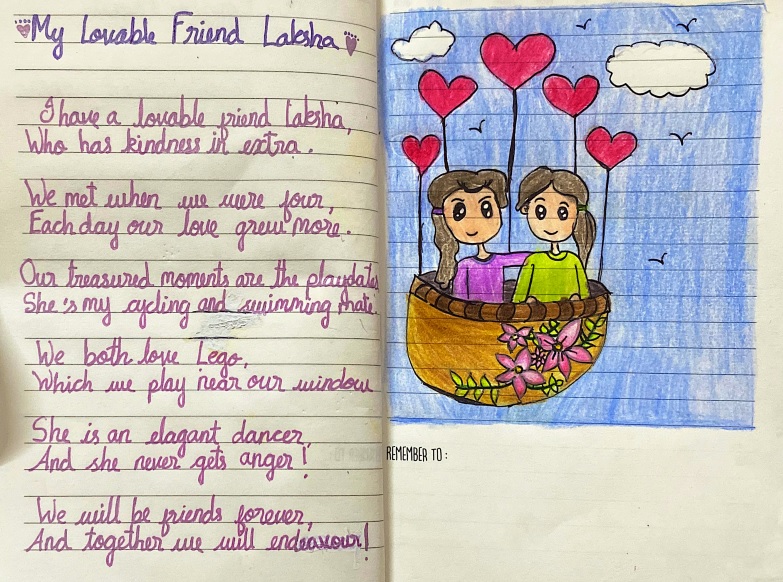 My Lovable Friend Laksha
I have a lovable friend laksha,
Who has kindness in extra.
We met when we were four,
Each day our love grew more.
Our treasured moments are the playdates
She's my cycling and swimming mate.
We both love Lego,
Which we play near our window
She is an elagant dancer,
And she never gets anger!
We will be friends forever,
And together we will endeavour!
REMEMBER TO: